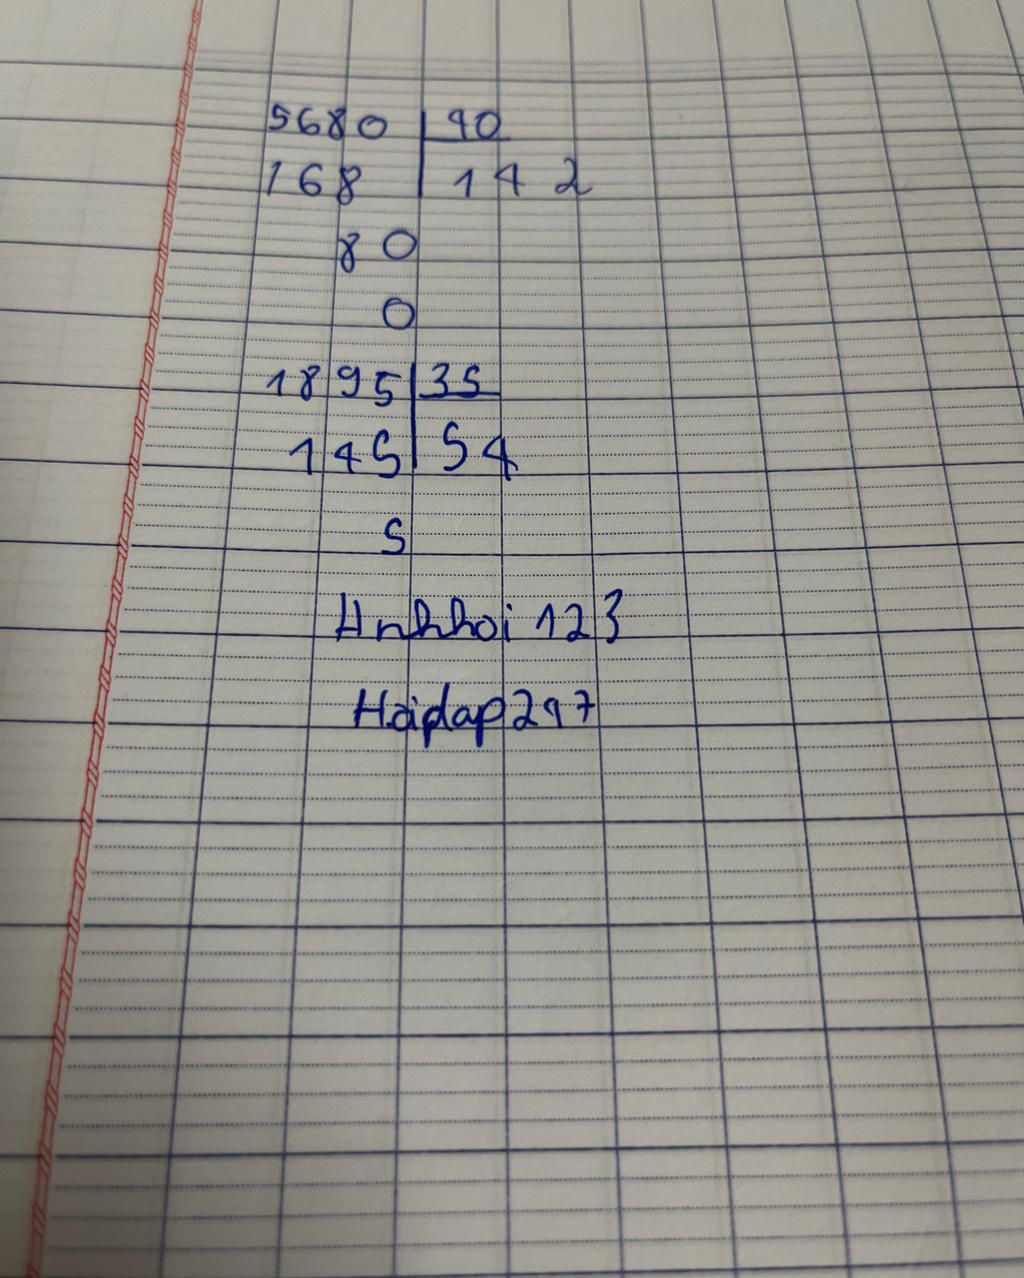 5680 40
168 142
80
0
1895 35
145 54
5
Anhhoi 123
Hoidap247